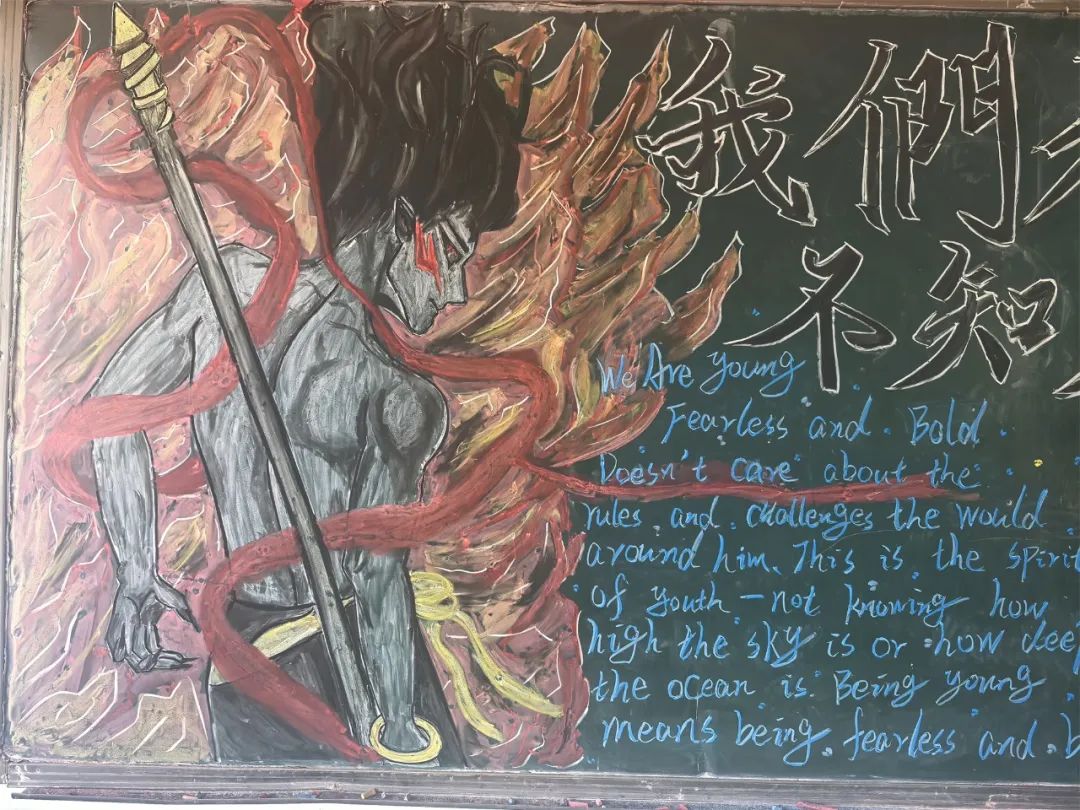 我們
不知
We Are young
Fearless and. Bold.
Doesn't care about the
rules. and. challenges the would.
around him. This is the spirit
of youth - not knowing how
high the sky is or how deep
the ocean is. Being young
means being. fearless and.